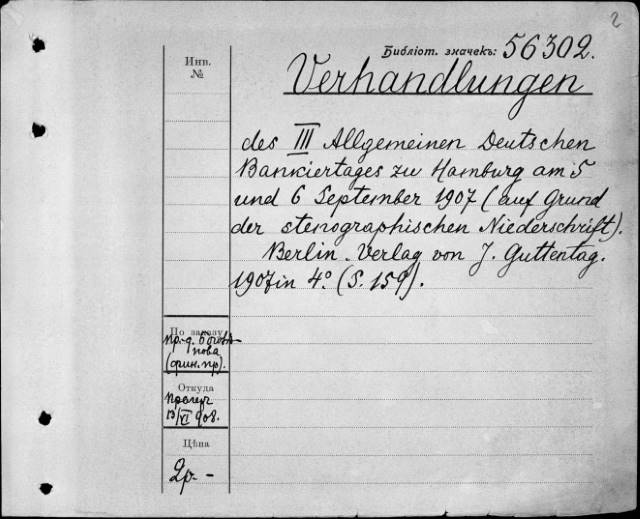 2
Библіот. значекъ: 56302.
Инв.
№
Verhandlungen
des III Allgemeinen Deutschen
Bankiertages zu Hamburg am 5
und 6 September 1907 (auf Grund
der stenographischen Niederschrift).
Berlin. Verlag von J. Guttentag.
1907 in 4º. (S. 159).
По заказу
пр.-д.
нова
(фин. пр).
Откуда
13/XI 908.
Цѣна
2р. -